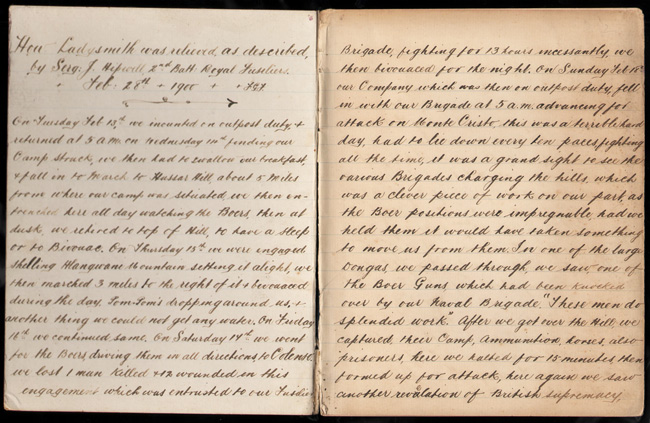 How Ladysmith was relieved, as described,
by Serg. J. Hipwell, 2nd Batt Royal Fusiliers.
" Feb: 28th " 1900 " "
On Tuesday Feb 13th we mounted on outpost duty, &
returned at 5 a.m. on Wednesday 14th finding our
Camp struck, we then had to swallow our breakfast,
& fall in to March to Hussar Hill about 5 Miles
from where our camp was situated, we then en-
trenched here all day watching the Boers, then at
dusk, we retired to top of Hill, to have a Sleep
or to Bivouac. On Thursday 15th we were engaged
shelling Hlangwane Mountain setting it alight, we
then marched 3 miles to the right of it & bivouaced
during the day, Tom-Tom's dropping around us, &
another thing we could not get any water. On Friday
16th we continued same. On Saturday 17th we went
for the Boers driving them in all directions to Colenso
we lost 1 man killed & 12 wounded in this
engagement which was entrusted to our Fusilier
Brigade, fighting for 13 hours incessantly, we
then bivouaced for the night. On Sunday Feb 18th
our Company which was then on outpost duty, fell
in with our Brigade at 5 a.m. advancing for
attack on Monte Cristo, this was a terrible hard
day, had to lie down every ten paces, fighting
all the time, it was a grand sight to see the
various Brigades charging the hills, which
was a clever piece of work on our part, as
the Boer positions were impregnable, had we
held them it would have taken something
to move us from them. In one of the large
Dongas, we passed through, we saw one of
the Boer Guns, which had been knocked
over by our Naval Brigade. "These men do
splendid work." After we got over the Hill, we
captured their Camp, Ammunition, horses, also
prisoners, here we halted for 15 minutes then
formed up for attack, here again we saw
another revalation of British supremacy,